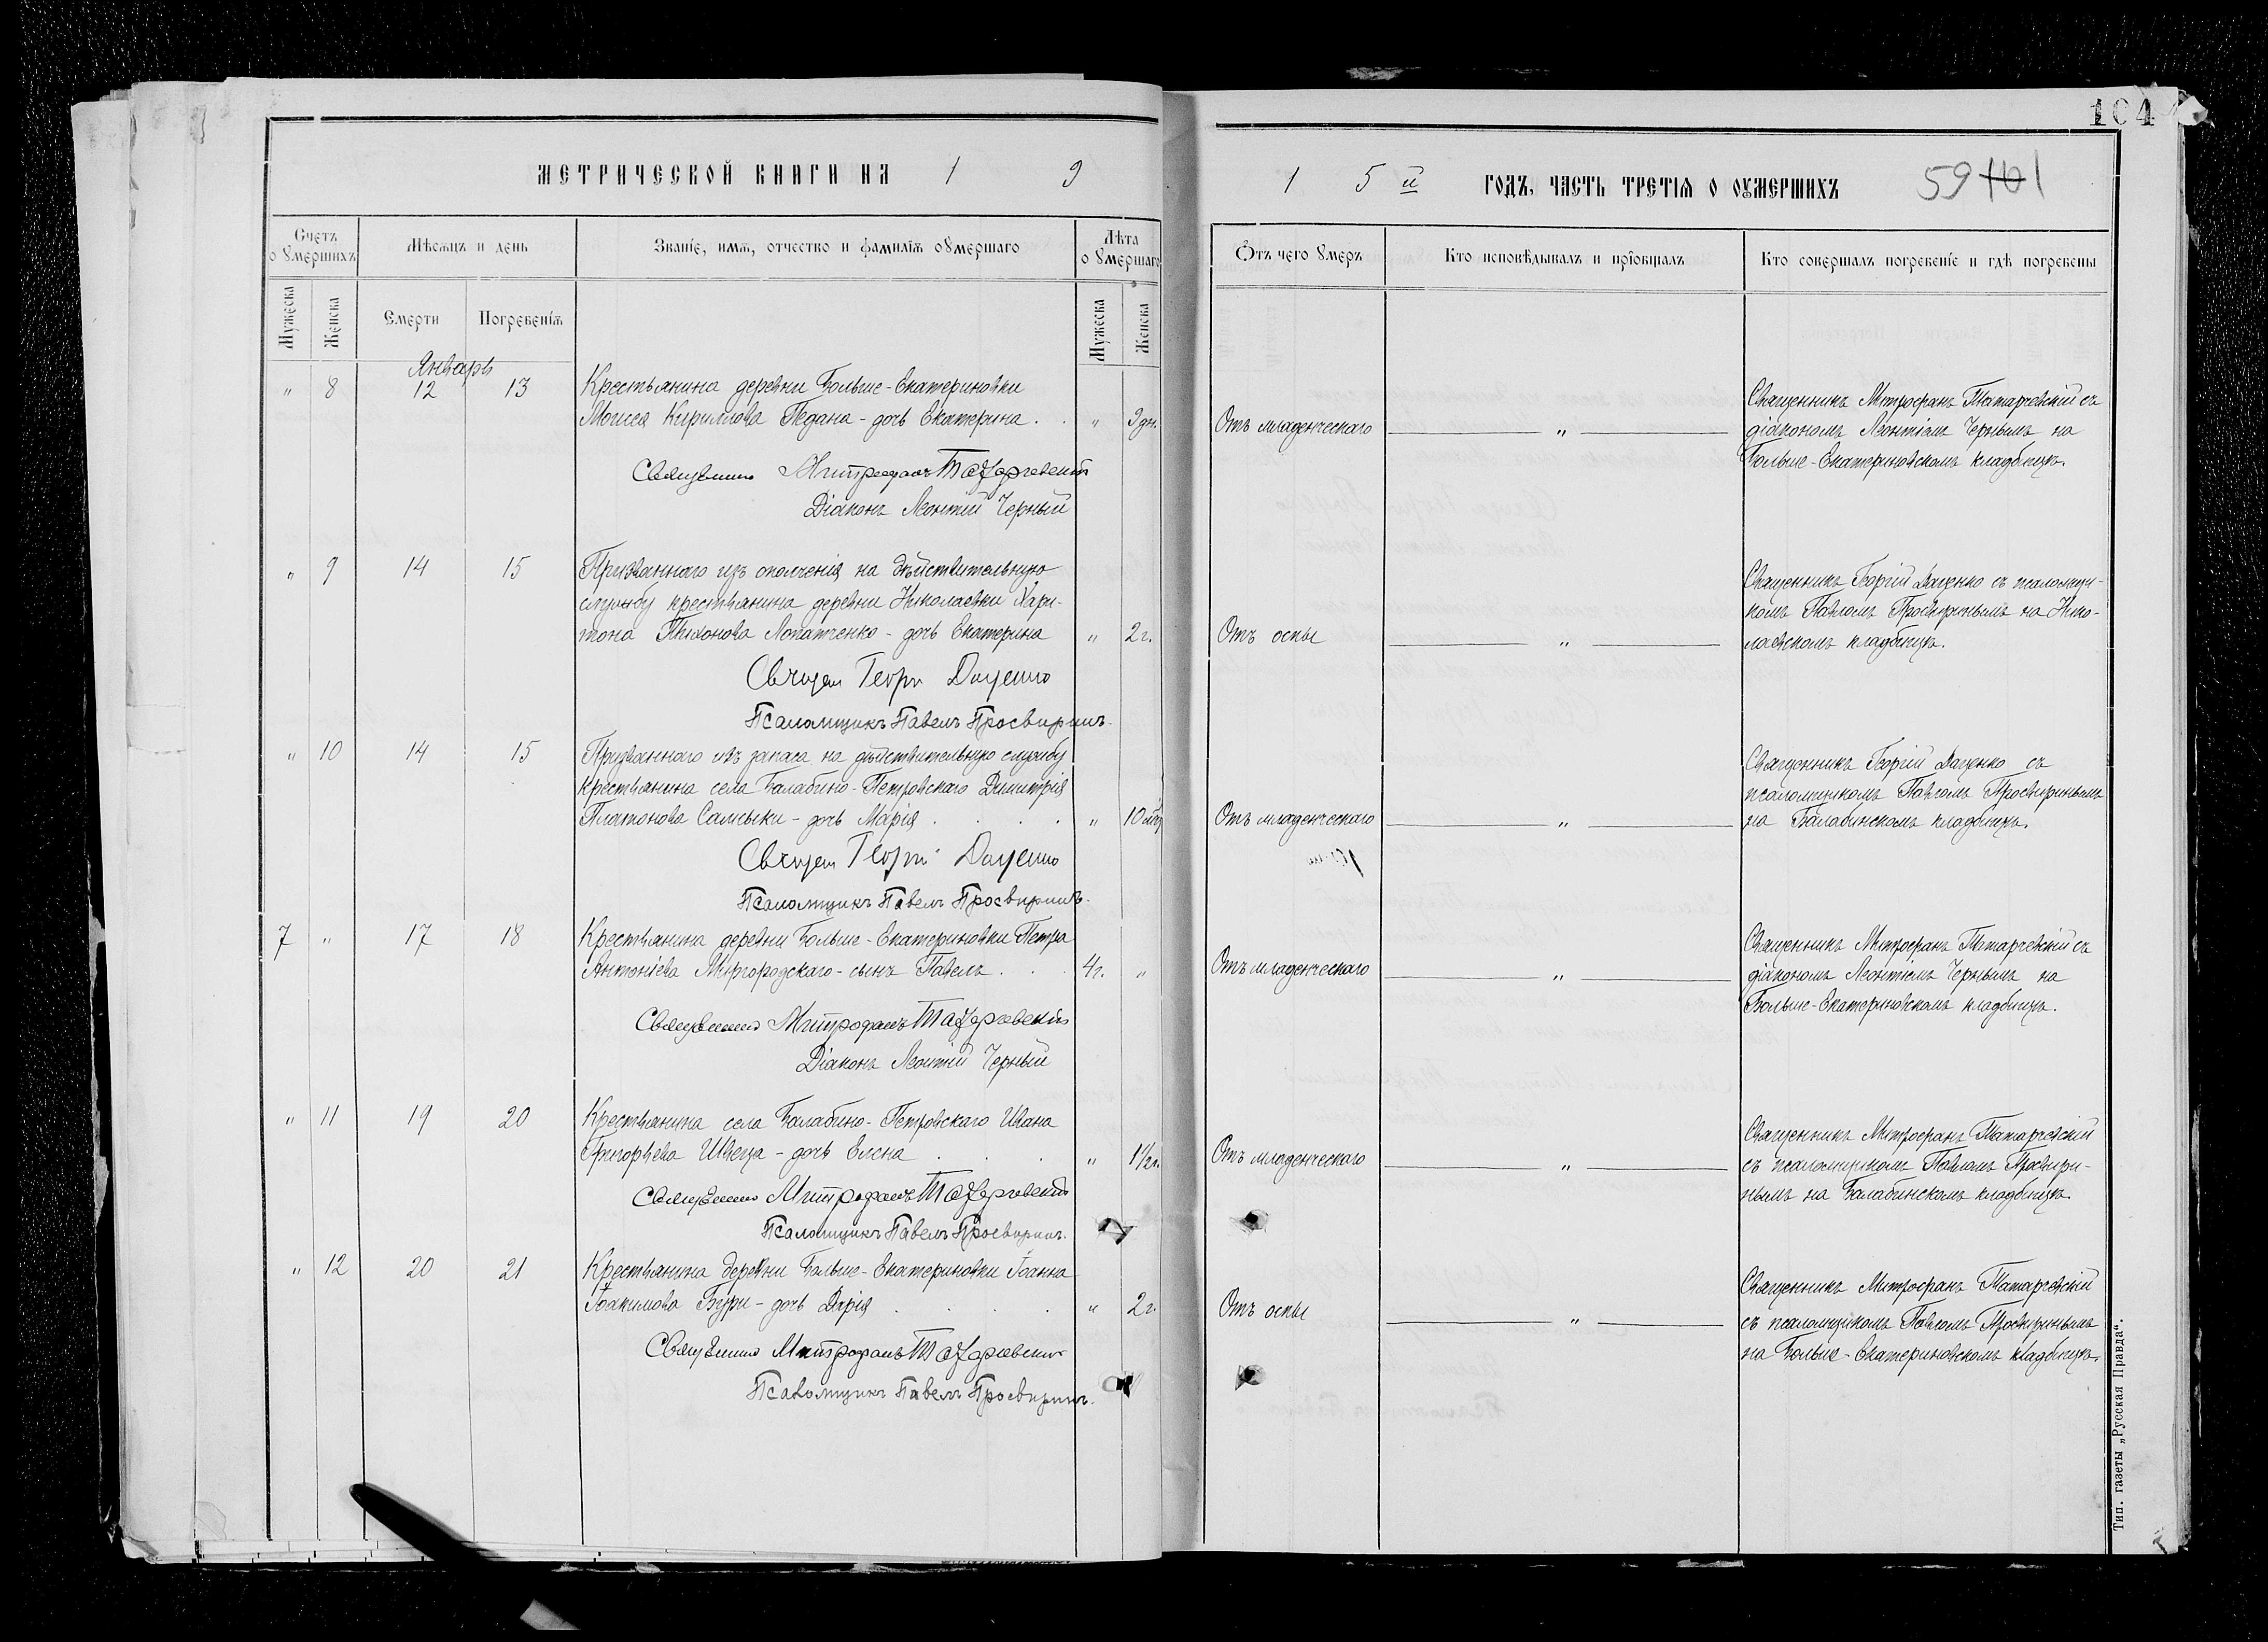 104
МЕТРИЧЕСКОЙ КНИГИ НА 1 9
1 5 й ГОДЪ, ЧАСТЬ ТРЕТІЯ О ОУМЕРШИХЪ 59 101
Счетъ оумершихъ
Мѣсяцъ и день
Званіе, имя, отчество и фамилія оумершаго
Лѣта оумершаго
Отъ чего умеръ
Кто исповѣдывалъ и пріобщалъ
Кто совершалъ погребеніе и гдѣ погребены
Мужеска
Женска
Смерти
Погребенія
Мужеска
Женска
Январь
" 8 12 13 Крестьянина деревни Больше-Екатериновки
Моисея Кириллова Педана - дочь Екатерина . . " 9 дн.
Отъ младенческаго "
Священникъ Митрофанъ Татаревскій съ
діакономъ Леонтіемъ Чернымъ на
Больше-Екатериновскомъ кладбищѣ.
Священникъ Митрофанъ Татаревскій
Діаконъ Леонтій Черный
" 9 14 15 Призваннаго изъ ополченія на дѣйствительную
службу крестьянина деревни Николаевки Хари-
тона Тихонова Лопатченко - дочь Екатерина " 2 г.
Отъ оспы "
Священникъ Георгій Даценко съ псаломщи-
комъ Павломъ Просвиринымъ на Нико-
лаевскомъ кладбищѣ.
Священ Георгій Даценко
Псаломщикъ Павелъ Просвиринъ.
" 10 14 15 Призваннаго изъ запаса на дѣйствительную службу
крестьянина села Балабино-Петровскаго Димитрія
Платонова Салмыки - дочь Марія . . . . " 10 мѣс
Отъ младенческаго "
Священникъ Георгій Даценко съ
псаломщикомъ Павломъ Просвиринымъ
на Балабинскомъ кладбищѣ.
Священ Георгій Даценко
Псаломщикъ Павелъ Просвиринъ.
7 " 17 18 Крестьянина деревни Больше-Екатериновки Петра
Антоніева Миргородскаго - сынъ Павелъ . . . 4 г. "
Отъ младенческаго "
Священникъ Митрофанъ Татаревскій съ
діакономъ Леонтіемъ Чернымъ на
Больше-Екатериновскомъ кладбищѣ.
Священникъ Митрофанъ Татаревскій
Діаконъ Леонтій Черный
" 11 19 20 Крестьянина села Балабино-Петровскаго Ивана
Григорьева Швеца - дочь Елена . . . " 1½ г.
Отъ младенческаго "
Священникъ Митрофанъ Татаревскій
съ псаломщикомъ Павломъ Просвири-
нымъ на Балабинскомъ кладбищѣ.
Священникъ Митрофанъ Татаревскій
Псаломщикъ Павелъ Просвиринъ.
" 12 20 21 Крестьянина деревни Больше-Екатериновки Іоанна
Іоакимова Бури - дочь Дарія . . . . " 2 г.
Отъ оспы "
Священникъ Митрофанъ Татаревскій
съ псаломщикомъ Павломъ Просвиринымъ
на Больше-Екатериновскомъ кладбищѣ.
Священникъ Митрофанъ Татаревскій
Псаломщикъ Павелъ Просвиринъ.
Тип. газеты „Русская Правда“.